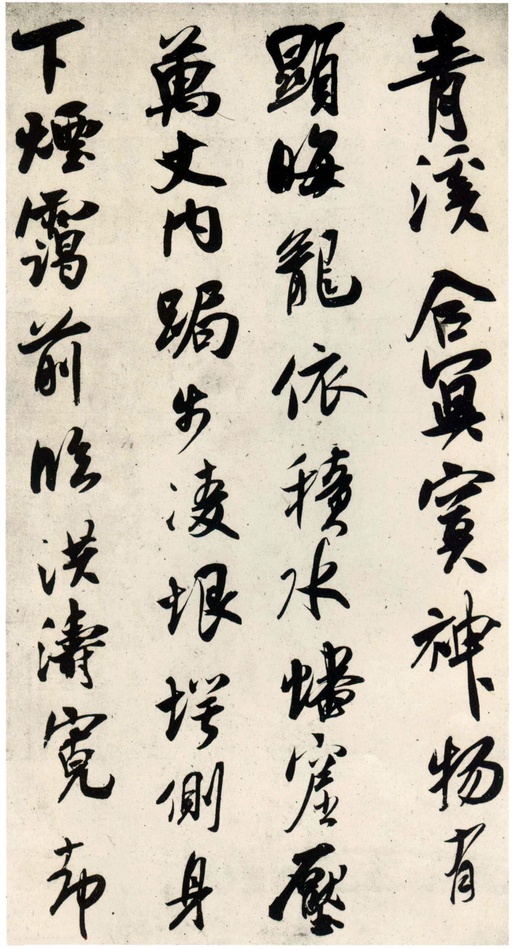 青溪合冥寞神物有
顯晦龍依積水蟠窟壓
萬丈内跼步凌垠堮側身
下煙靄前臨洪濤寬却